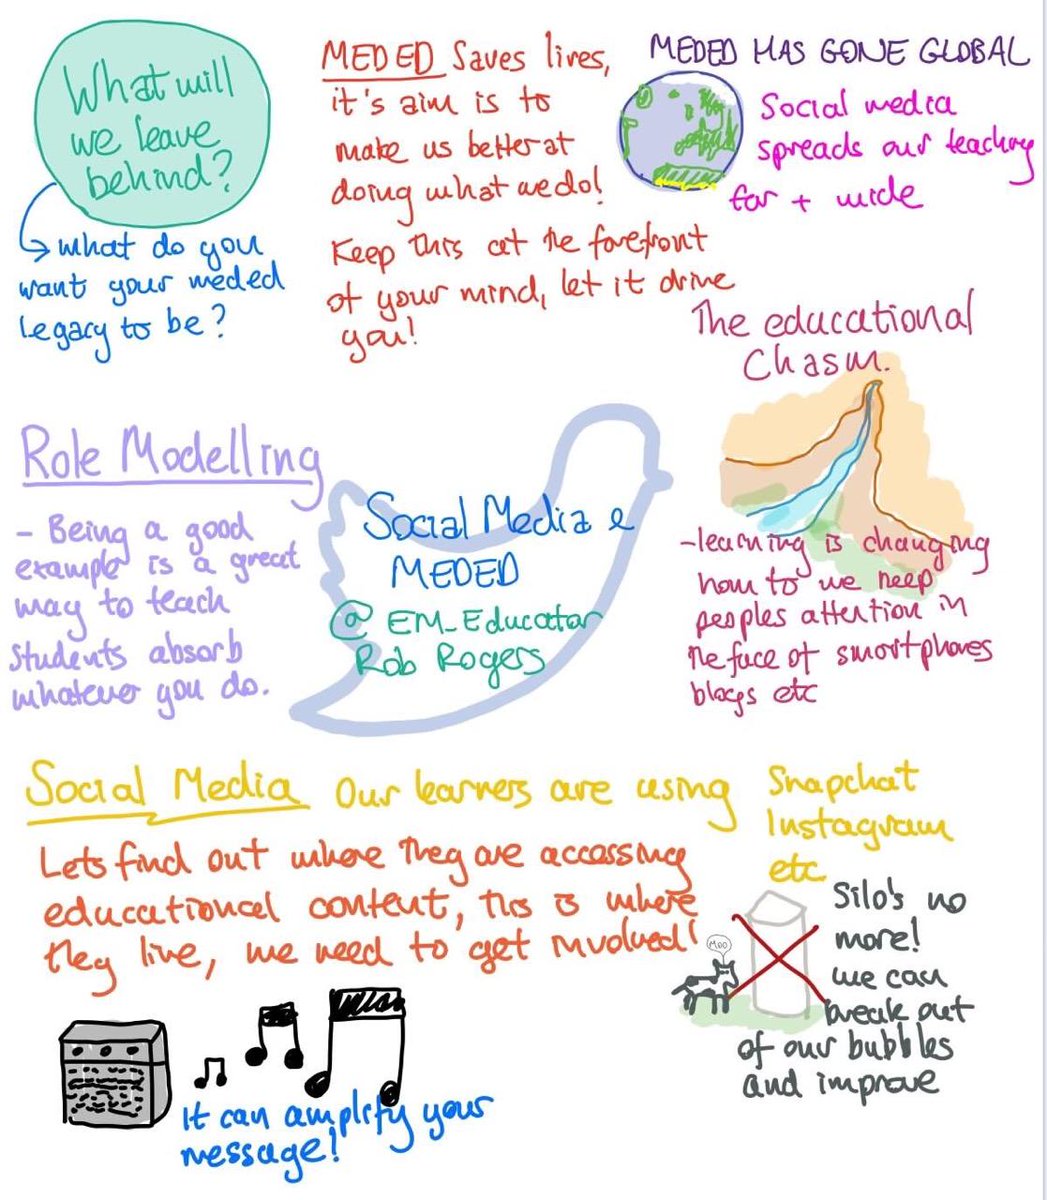 What will
we leave
behind?
what do you
want your meded
legacy to be?
MEDED Saves lives,
it's aim is to
make us better at
doing what we do!
Keep this at the forefront
of your mind, let it drive
you!
MEDED HAS GONE GLOBAL
Social media
spreads our teaching
far + wide
The educational
Chasm.
-learning is changing
how to we keep
peoples attention in
the face of smartphones
blogs etc
Role Modelling
- Being a good
example is a great
way to teach
students absorb
whatever you do.
Social Media e
MEDED
@ EM_Educator
Rob Rogers
Social Media Our learners are using Snapchat
Instagram
etc
Lets find out where they are accessing
educational content, this is where
they live, we need to get involved!
Moo
Silo's no
more!
we can
break out
of our bubbles
and improve
It can amplify your
message!